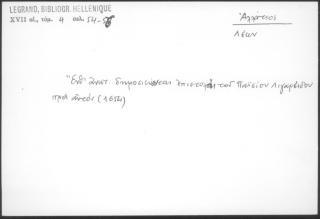 LEGRAND, BIBLIOGR. HELLENIQUE
XVII αἰ, τόμ. 4 σελ. 54-
Ἀλλάτιος
Λέων
Ἐδῶ δημοσιεύεται ἐπιστολὴ τοῦ Παϊσίου Λιγαρίδου
πρὸς αὐτὸν (1652)